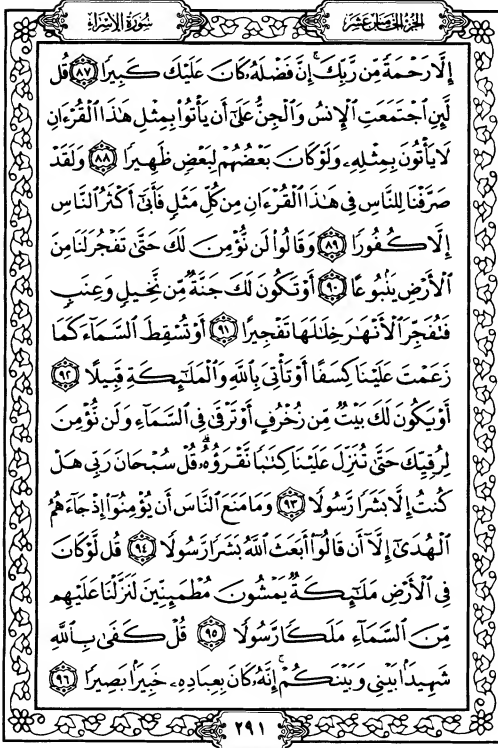 سورة الإسراء
الجزء الخامس عشر
إِلَّا رَحْمَةً مِّن رَّبِّكَ ۚ إِنَّ فَضْلَهُۥ كَانَ عَلَيْكَ كَبِيرًا ٨٧ قُل
لَّئِنِ ٱجْتَمَعَتِ ٱلْإِنسُ وَٱلْجِنُّ عَلَىٰٓ أَن يَأْتُوا۟ بِمِثْلِ هَٰذَا ٱلْقُرْءَانِ
لَا يَأْتُونَ بِمِثْلِهِۦ وَلَوْ كَانَ بَعْضُهُمْ لِبَعْضٍ ظَهِيرًا ٨٨ وَلَقَدْ
صَرَّفْنَا لِلنَّاسِ فِى هَٰذَا ٱلْقُرْءَانِ مِن كُلِّ مَثَلٍ فَأَبَىٰٓ أَكْثَرُ ٱلنَّاسِ
إِلَّا كُفُورًا ٨٩ وَقَالُوا۟ لَن نُّؤْمِنَ لَكَ حَتَّىٰ تَفْجُرَ لَنَا مِنَ
ٱلْأَرْضِ يَنۢبُوعًا ٩٠ أَوْ تَكُونَ لَكَ جَنَّةٌ مِّن نَّخِيلٍ وَعِنَبٍ
فَتُفَجِّرَ ٱلْأَنْهَٰرَ خِلَٰلَهَا تَفْجِيرًا ٩١ أَوْ تُسْقِطَ ٱلسَّمَآءَ كَمَا
زَعَمْتَ عَلَيْنَا كِسَفًا أَوْ تَأْتِىَ بِٱللَّهِ وَٱلْمَلَٰٓئِكَةِ قَبِيلًا ٩٢
أَوْ يَكُونَ لَكَ بَيْتٌ مِّن زُخْرُفٍ أَوْ تَرْقَىٰ فِى ٱلسَّمَآءِ وَلَن نُّؤْمِنَ
لِرُقِيِّكَ حَتَّىٰ تُنَزِّلَ عَلَيْنَا كِتَٰبًا نَّقْرَؤُهُۥ ۗ قُلْ سُبْحَانَ رَبِّى هَلْ
كُنتُ إِلَّا بَشَرًا رَّسُولًا ٩٣ وَمَا مَنَعَ ٱلنَّاسَ أَن يُؤْمِنُوٓا۟ إِذْ جَآءَهُمُ
ٱلْهُدَىٰٓ إِلَّآ أَن قَالُوٓا۟ أَبَعَثَ ٱللَّهُ بَشَرًا رَّسُولًا ٩٤ قُل لَّوْ كَانَ
فِى ٱلْأَرْضِ مَلَٰٓئِكَةٌ يَمْشُونَ مُطْمَئِنِّينَ لَنَزَّلْنَا عَلَيْهِم
مِّنَ ٱلسَّمَآءِ مَلَكًا رَّسُولًا ٩٥ قُلْ كَفَىٰ بِٱللَّهِ
شَهِيدًۢا بَيْنِى وَبَيْنَكُمْ ۚ إِنَّهُۥ كَانَ بِعِبَادِهِۦ خَبِيرًۢا بَصِيرًا ٩٦
٢٩١